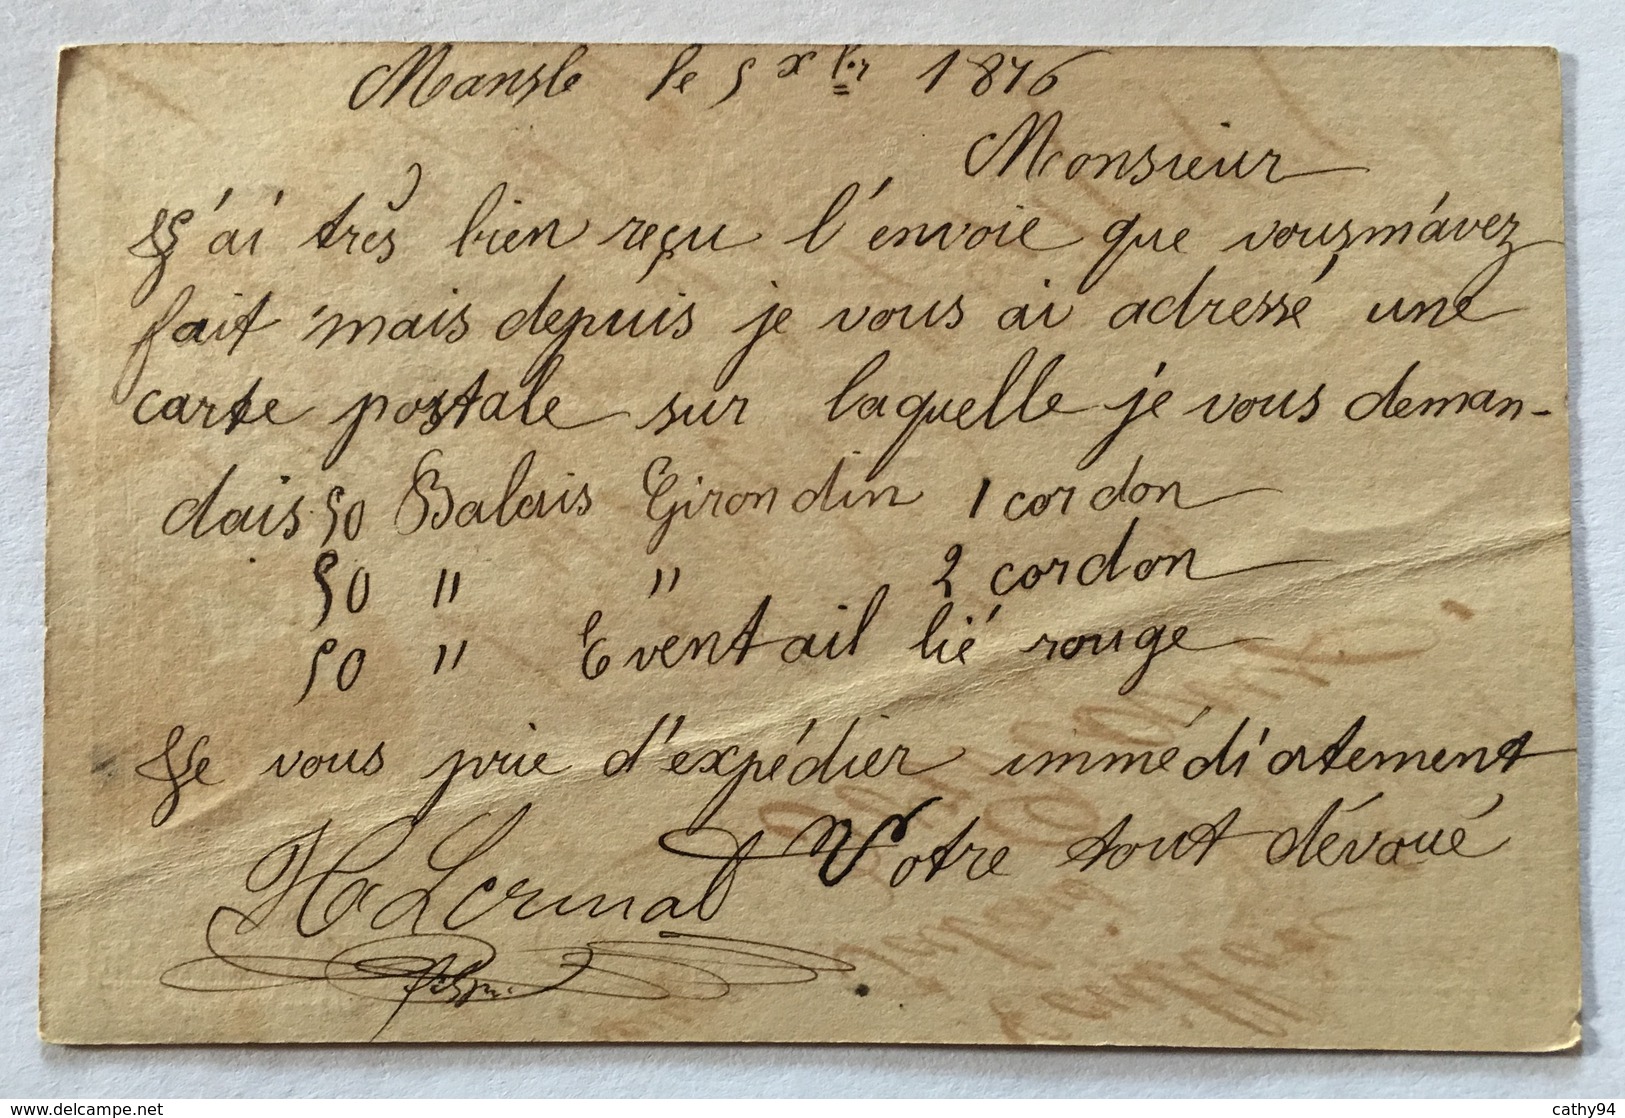 Mansle le 5 xbr 1876
Monsieur
J'ai très bien reçu l'envoie que vous m'avez
fait mais depuis je vous ai adressé une
carte postale sur laquelle je vous deman-
dais 50 Balais Girondin 1 cordon
50 " " 2 cordon
50 " Eventail lié rouge
Je vous prie d'expédier immédiatement
Votre tout dévoué
delcampe.net
cathy94